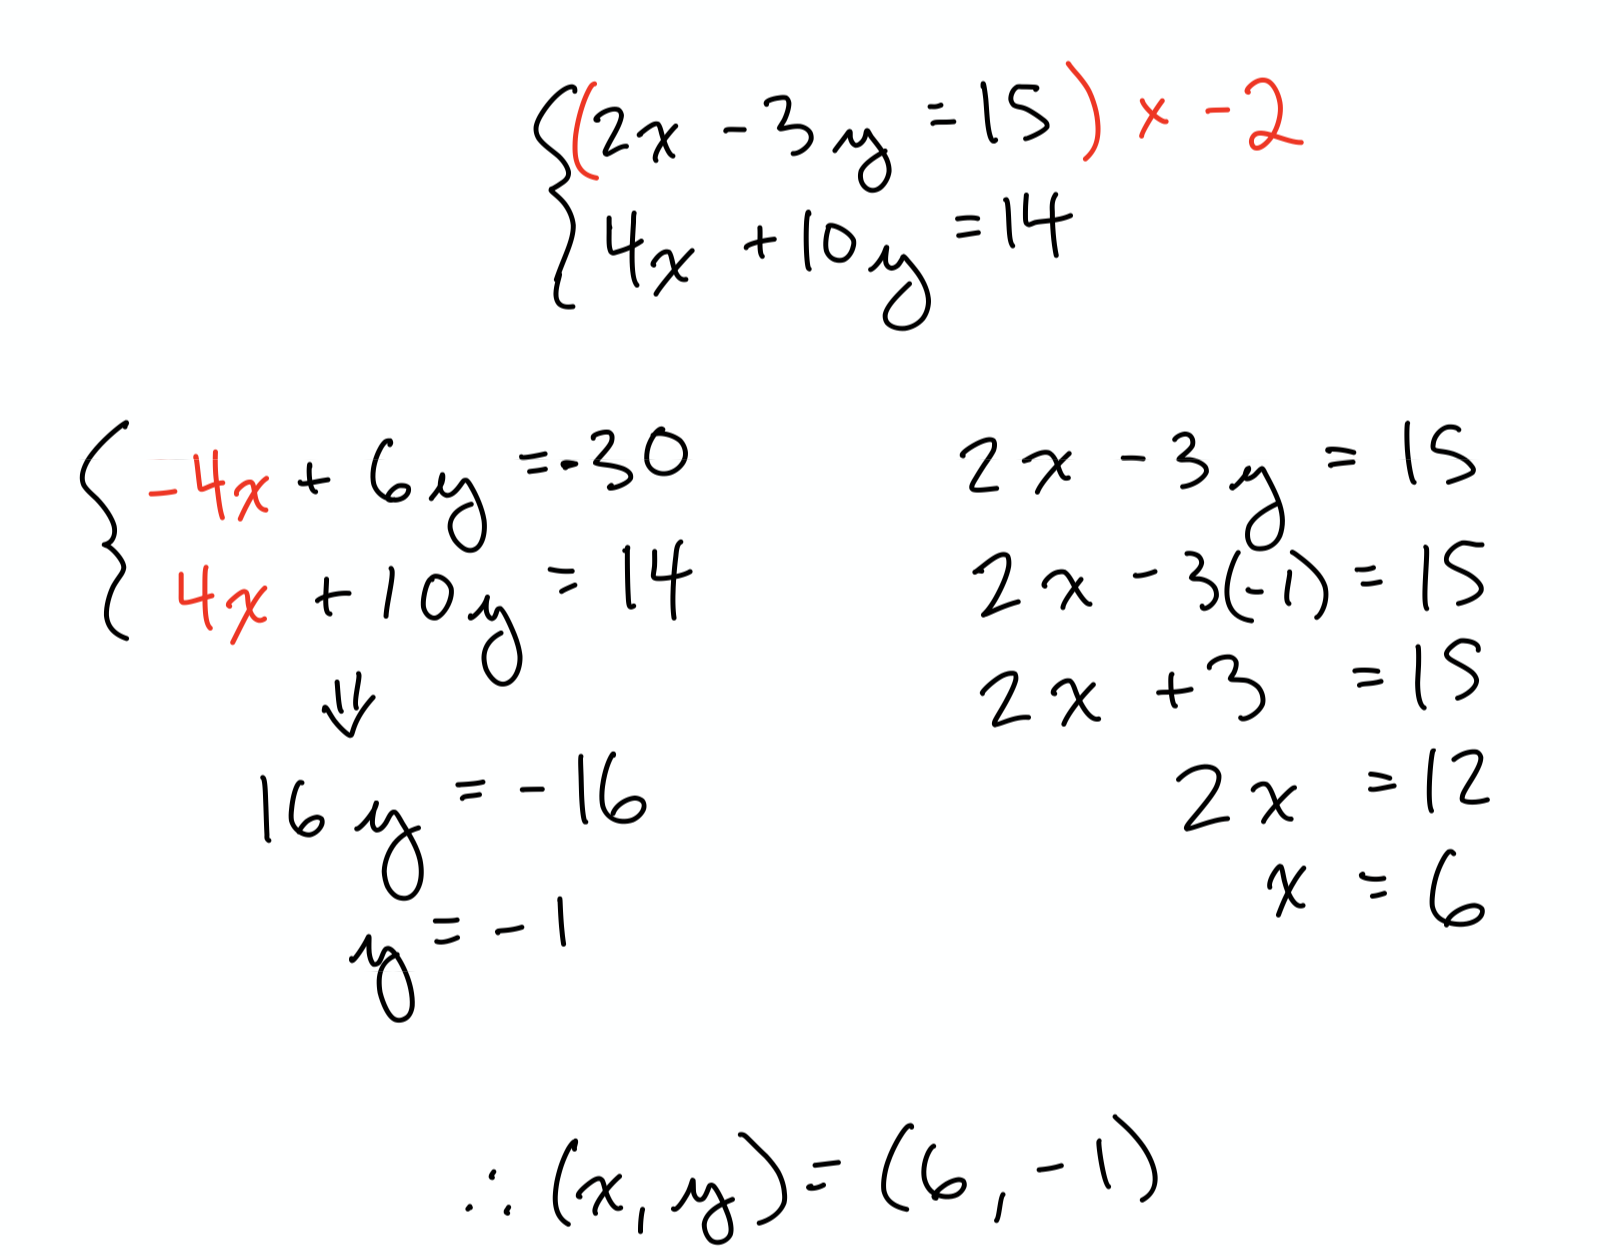 (2x - 3y = 15) x - 2
4x + 10y = 14
-4x + 6y = -30
4x + 10y = 14
⇓
16y = -16
y = -1
2x - 3y = 15
2x - 3(-1) = 15
2x + 3 = 15
2x = 12
x = 6
∴ (x, y) = (6, -1)